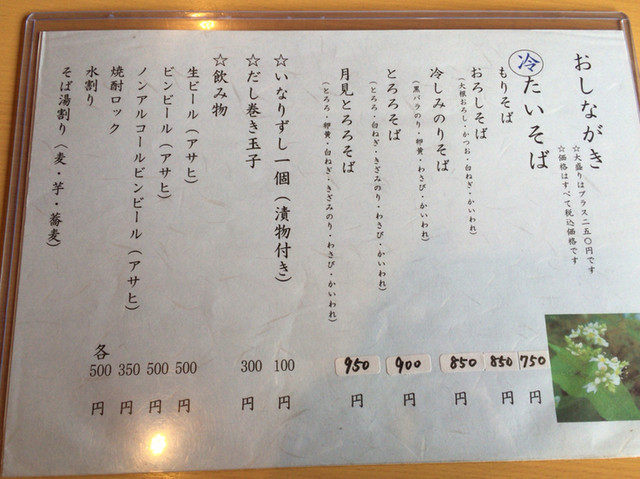 おしながき
☆大盛りはプラス二五〇円です
☆価格はすべて税込価格です
冷たいそば
もりそば 750円
おろしそば 850円
(大根おろし・かつお・白ねぎ・かいわれ)
冷しみのりそば 850円
(黒バラのり・卵黄・わさび・かいわれ)
とろろそば 900円
(とろろ・白ねぎ・きざみのり・わさび・かいわれ)
月見とろろそば 950円
(とろろ・卵黄・白ねぎ・きざみのり・わさび・かいわれ)
☆いなりずし一個(漬物付き) 100円
☆だし巻き玉子 300円
☆飲み物
生ビール(アサヒ) 500円
ビンビール(アサヒ) 500円
ノンアルコールビンビール(アサヒ) 350円
焼酎ロック
水割り 各500円
そば湯割り(麦・芋・蕎麦)